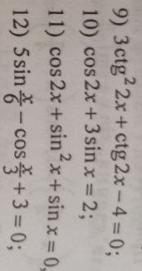 9) 3 ctg² 2x + ctg 2x − 4 = 0;
10) cos 2x + 3 sin x = 2;
11) cos 2x + sin² x + sin x = 0,
12) 5 sin x/6 − cos x/3 + 3 = 0;